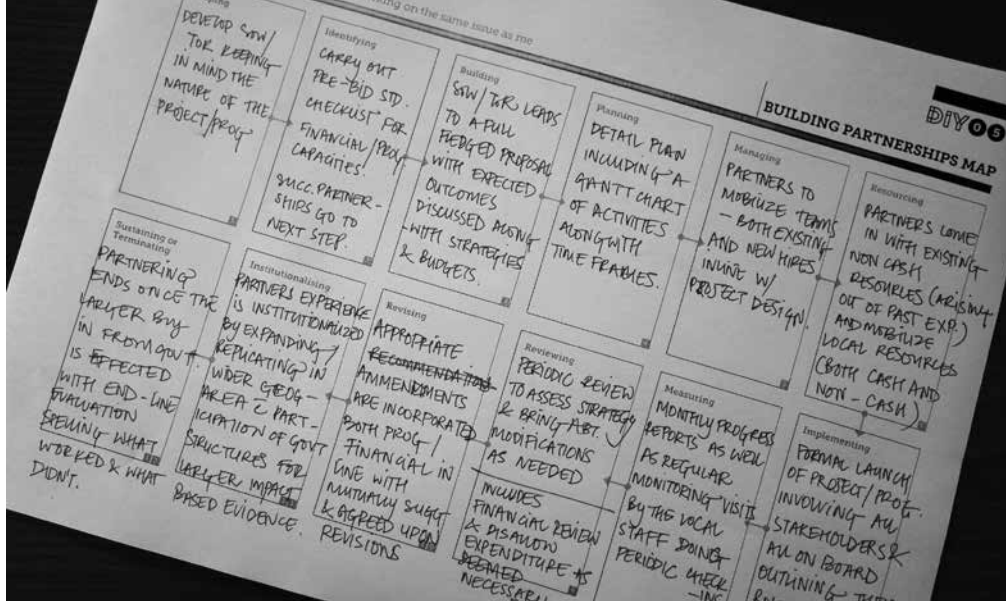 king on the same issue as me
BUILDING PARTNERSHIPS MAP
DIY 05
DEVELOP SOW/
TOR KEEPING
IN MIND THE
NATURE OF THE
PROJECT/PROG
Identifying
CARRY OUT
PRE-BID STD.
CHECKLIST FOR
FINANCIAL/PROG
CAPACITIES.
SUCC. PARTNER-
SHIPS GO TO
NEXT STEP.
Building
SOW/TOR LEADS
TO A FULL
FLEDGED PROPOSAL
WITH EXPECTED
OUTCOMES
DISCUSSED ALONG
WITH STRATEGIES
& BUDGETS.
Planning
DETAIL PLAN
INCLUDING A
GANTT CHART
OF ACTIVITIES
ALONGWITH
TIME FRAMES.
Managing
PARTNERS TO
MOBILIZE TEAMS
- BOTH EXISTING
AND NEW HIRES
INLINE W/
PROJECT DESIGN.
Resourcing
PARTNERS COME
IN WITH EXISTING
NON CASH
RESOURCES (ARISING
OUT OF PAST EXP.)
AND MOBILIZE
LOCAL RESOURCES
(BOTH CASH AND
NON-CASH)
Sustaining or
Terminating
PARTNERING
ENDS ONCE THE
LARGER BUY
IN FROM GOVT.
IS EFFECTED
WITH END-LINE
EVALUATION
SPELLING WHAT
WORKED & WHAT
DIDN'T.
Institutionalising
PARTNERS EXPERIENCE
IS INSTITUTIONALIZED
BY EXPANDING/
REPLICATING IN
WIDER GEOG-
AREA C PART-
ICIPATION OF GOVT
STRUCTURES FOR
LARGER IMPACT
BASED EVIDENCE.
Revising
APPROPRIATE
RECOMMENDATIONS
AMMENDMENTS
ARE INCORPORATED
BOTH PROG/
FINANCIAL IN
LINE WITH
MUTUALLY SUGG
& AGREED UPON
REVISIONS
Reviewing
PERIODIC REVIEW
TO ASSESS STRATEGY
& BRING ABT.
MODIFICATIONS
AS NEEDED
INCLUDES
FINANCIAL REVIEW
& DISALLOW
EXPENDITURE AS
DEEMED
NECESSARY
Measuring
MONTHLY PROGRESS
REPORTS AS WELL
AS REGULAR
MONITORING VISITS
BY THE LOCAL
STAFF DOING
PERIODIC CHECK
-ING
Implementing
FORMAL LAUNCH
OF PROJECT/PROG.
INVOLVING ALL
STAKEHOLDERS &
ALL ON BOARD
OUTLINING